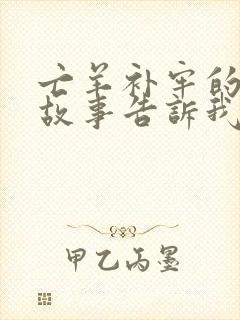 亡羊补牢的
故事告訴我
甲乙丙墨